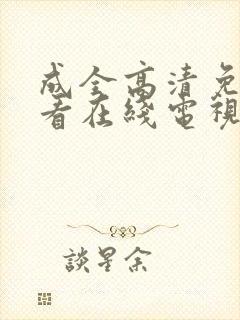 成全高清免
看在綫電視
談星余